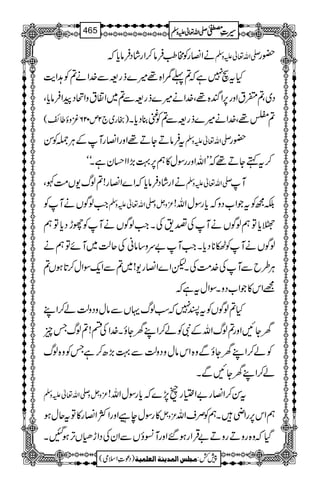 سیرتِ مصطفیٰ صلی اللہ تعالیٰ علیہ وسلم 465
حضور صلی اللہ تعالیٰ علیہ وسلم نے انصار کو مخاطب فرما کر ارشاد فرمایا کہ
کیا یہ سچ نہیں ہے کہ تم پہلے گمراہ تھے میرے ذریعہ سے خدا نے تم کو ہدایت
دی، تم متفرق اور پراگندہ تھے، خدا نے میرے ذریعہ سے تم میں اتفاق واتحاد پیدا فرمایا،
تم مفلس تھے، خدا نے میرے ذریعہ سے تم کو غنی بنا دیا۔ (بخاری ج ۲ ص ۶۲۰ غزوۂ طائف)
حضور صلی اللہ تعالیٰ علیہ وسلم یہ فرماتے جاتے تھے اور انصار آپ کے ہر جملہ کو سن
کر یہ کہتے جاتے تھے کہ ’’اللہ اور رسول کا ہم پر بہت بڑا احسان ہے۔‘‘
آپ صلی اللہ تعالیٰ علیہ وسلم نے ارشاد فرمایا کہ اے انصار! تم لوگ یوں مت کہو،
بلکہ مجھ کو یہ جواب دو کہ یارسول اللہ! عزوجل وصلی اللہ تعالیٰ علیہ وسلم جب لوگوں نے آپ کو
جھٹلایا تو ہم لوگوں نے آپ کی تصدیق کی۔ جب لوگوں نے آپ کو چھوڑ دیا تو ہم
لوگوں نے آپ کو ٹھکانا دیا۔ جب آپ بے سروسامانی کی حالت میں آئے تو ہم نے
ہر طرح سے آپ کی خدمت کی۔ لیکن اے انصاریو! میں تم سے ایک سوال کرتا ہوں تم
مجھے اس کا جواب دو۔ سوال یہ ہے کہ
کیا تم لوگوں کو یہ پسند نہیں کہ سب لوگ یہاں سے مال و دولت لے کر اپنے
گھر جائیں اور تم لوگ اللہ کے نبی کو لے کر اپنے گھر جاؤ۔ خدا کی قسم! تم لوگ جس چیز
کو لے کر اپنے گھر جاؤ گے وہ اس مال و دولت سے بہت بڑھ کر ہے جس کو وہ لوگ
لے کر اپنے گھر جائیں گے۔
یہ سن کر انصار بے اختیار چیخ پڑے کہ یارسول اللہ! عزوجل وصلی اللہ تعالیٰ علیہ وسلم
ہم اس پر راضی ہیں۔ ہم کو صرف اللہ عزوجل کا رسول چاہیے اور اکثر انصار کا تو یہ حال ہو
گیا کہ وہ روتے روتے بے قرار ہو گئے اور آنسوؤں سے ان کی داڑھیاں تر ہو گئیں۔
پیش کش: مجلس المدینة العلمیة (دعوتِ اسلامی)